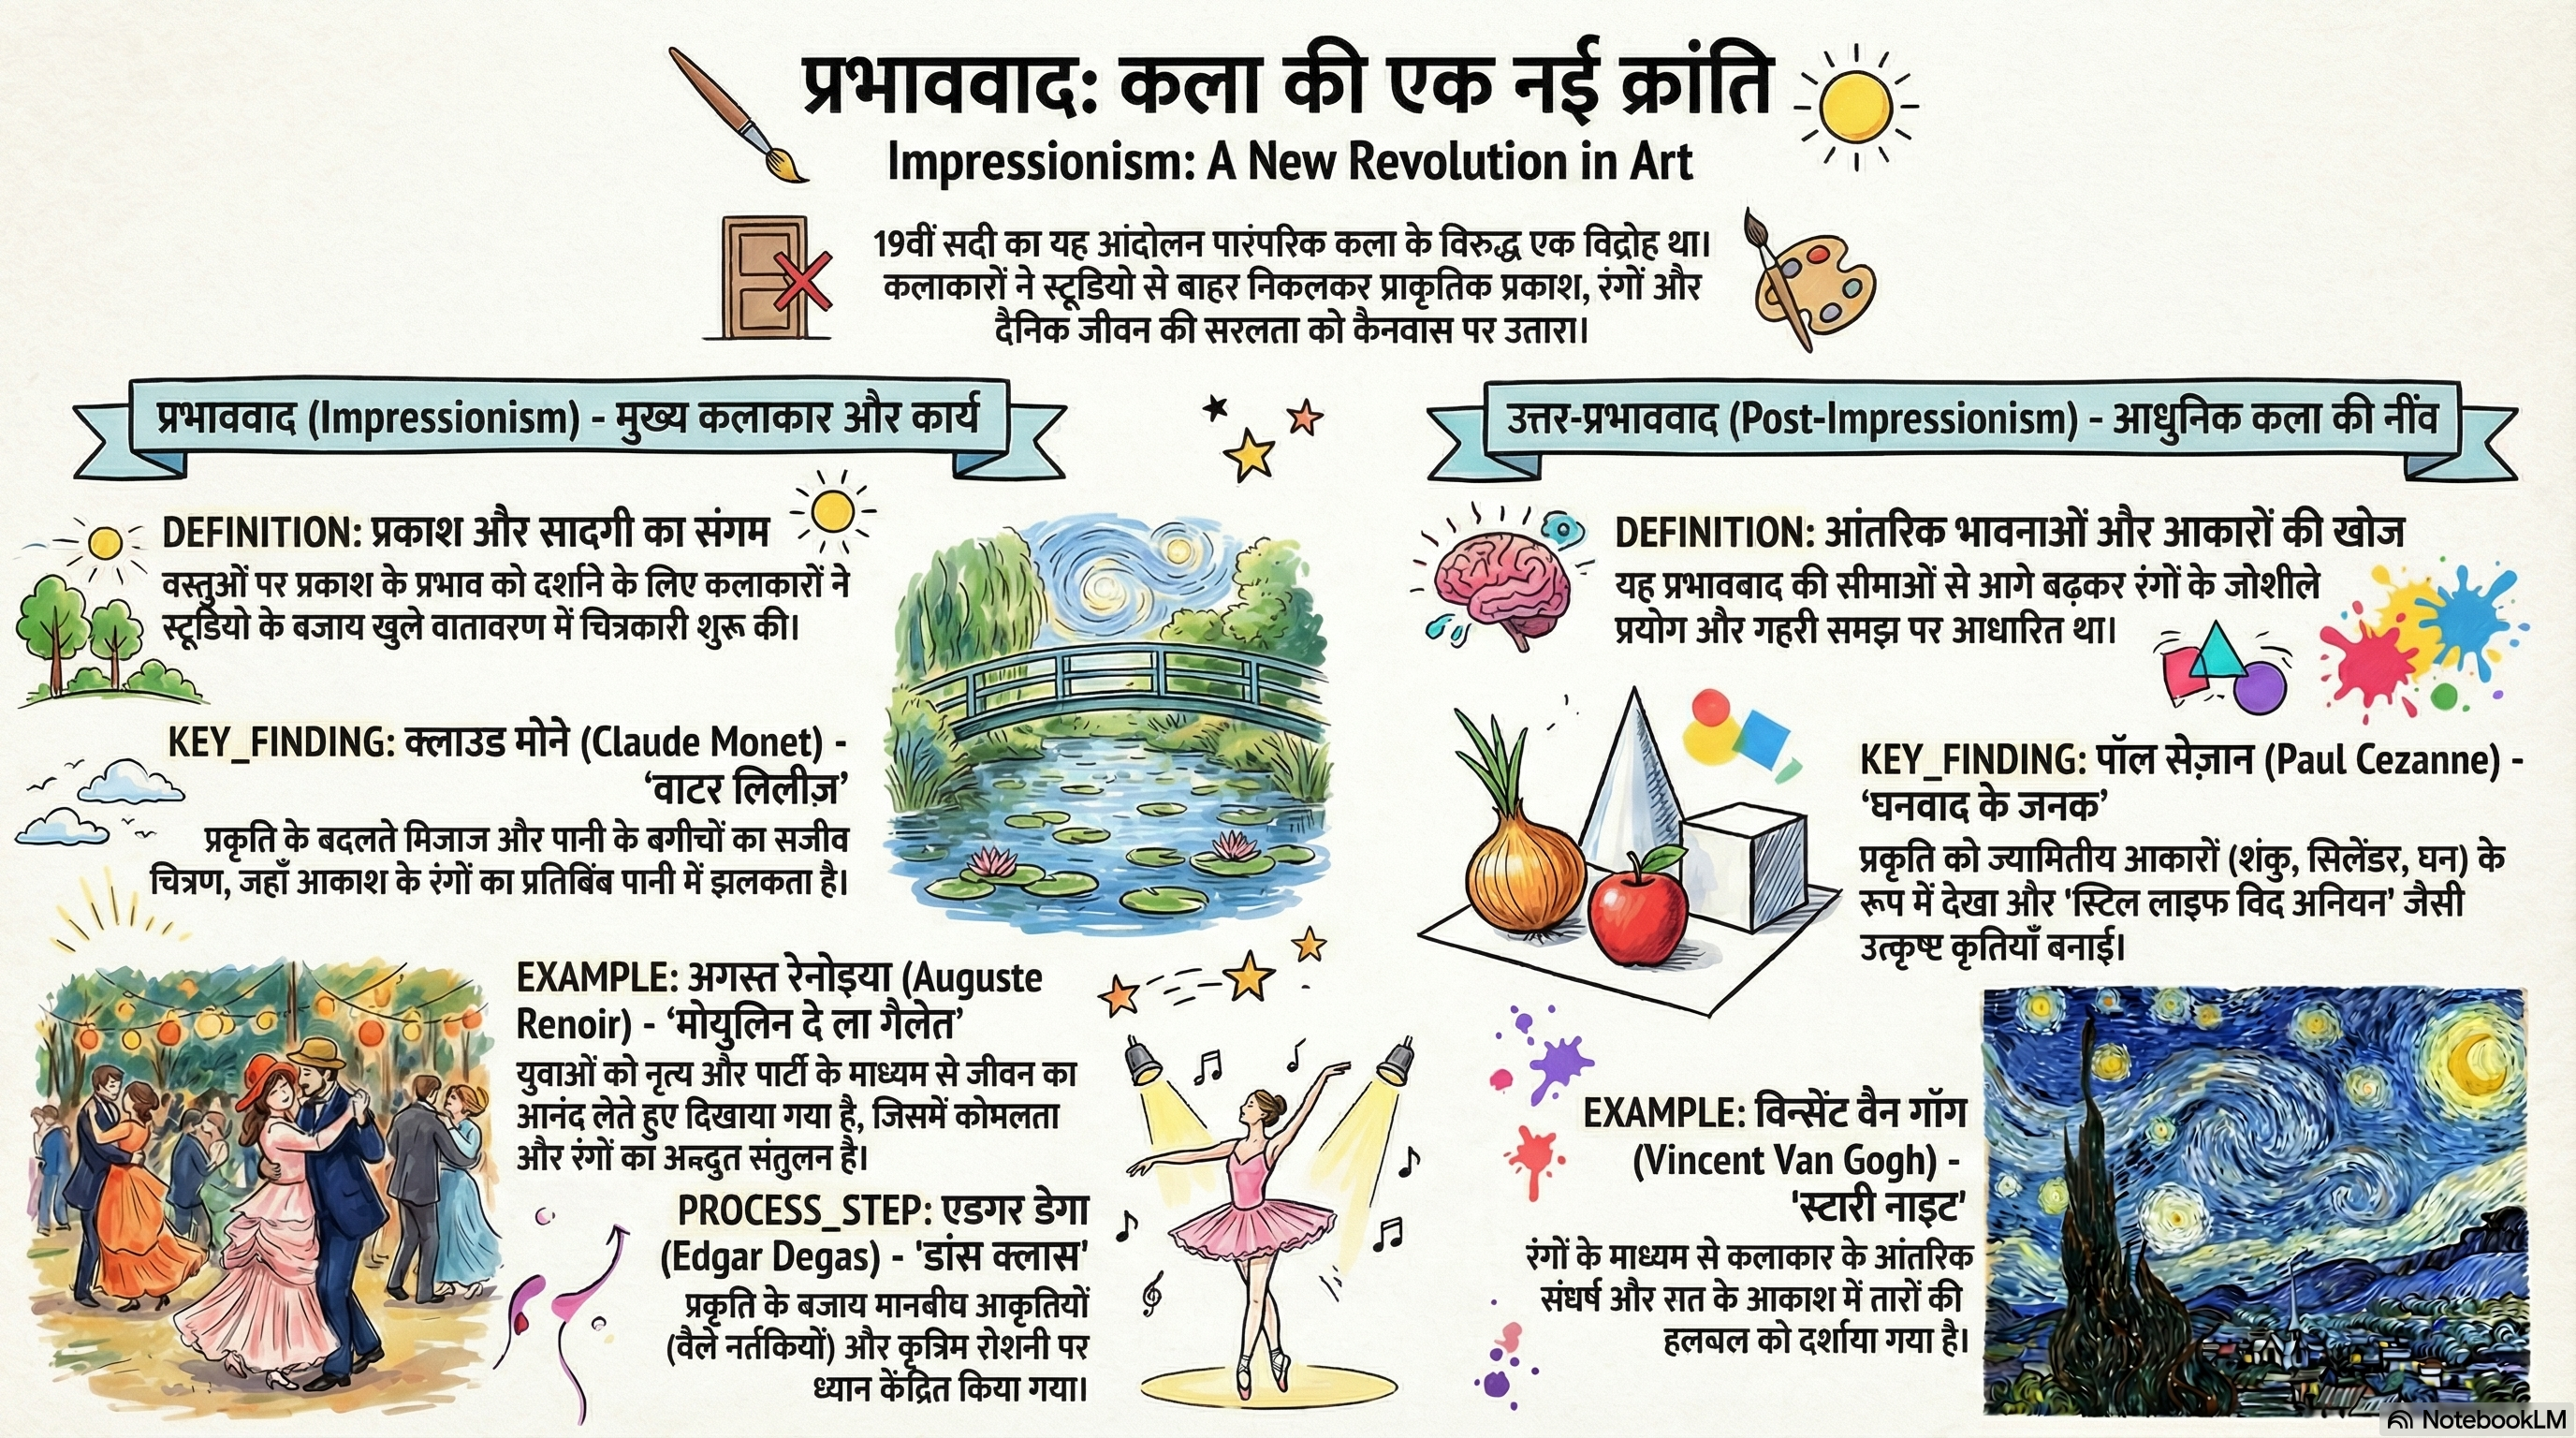 प्रभाववाद: कला की एक नई क्रांति
Impressionism: A New Revolution in Art
19वीं सदी का यह आंदोलन पारंपरिक कला के विरुद्ध एक विद्रोह था।
कलाकारों ने स्टूडियो से बाहर निकलकर प्राकृतिक प्रकाश, रंगों और
दैनिक जीवन की सरलता को कैनवास पर उतारा।
प्रभाववाद (Impressionism) - मुख्य कलाकार और कार्य
DEFINITION: प्रकाश और सादगी का संगम
वस्तुओं पर प्रकाश के प्रभाव को दर्शाने के लिए कलाकारों ने
स्टूडियो के बजाय खुले वातावरण में चित्रकारी शुरू की।
KEY_FINDING: क्लाउड मोने (Claude Monet) -
‘वाटर लिलीज़’
प्रकृति के बदलते मिजाज और पानी के बगीचों का सजीव
चित्रण, जहाँ आकाश के रंगों का प्रतिबिंब पानी में झलकता है।
EXAMPLE: अगस्त रेनोइया (Auguste
Renoir) - ‘मोयुलिन दे ला गैलेत’
युवाओं को नृत्य और पार्टी के माध्यम से जीवन का
आनंद लेते हुए दिखाया गया है, जिसमें कोमलता
और रंगों का संतुलन है।
PROCESS_STEP: एडगर डेगा
(Edgar Degas) - 'डांस क्लास'
प्रकृति के बजाय मानबीघ आकृतियों
(वैले नर्तकियों) और कृत्रिम रोशनी पर
ध्यान केंद्रित किया गया।
उत्तर-प्रभाववाद (Post-Impressionism) - आधुनिक कला की नींव
DEFINITION: आंतरिक भावनाओं और आकारों की खोज
यह प्रभावबाद की सीमाओं से आगे बढ़कर रंगों के जोशीले
प्रयोग और गहरी समझ पर आधारित था।
KEY_FINDING: पॉल सेज़ान (Paul Cezanne) -
‘घनवाद के जनक’
प्रकृति को ज्यामितीय आकारों (शंकु, सिलेंडर, घन) के
रूप में देखा और 'स्टिल लाइफ विद अनियन’ जैसी
उत्कृष्ट कृतियाँ बनाई।
EXAMPLE: विन्सेंट वैन गॉग
(Vincent Van Gogh) -
'स्टारी नाइट'
रंगों के माध्यम से कलाकार के आंतरिक
संधर्ष और रात के आकाश में तारों की
हलबल को दर्शाया गया है।
NotebookLM